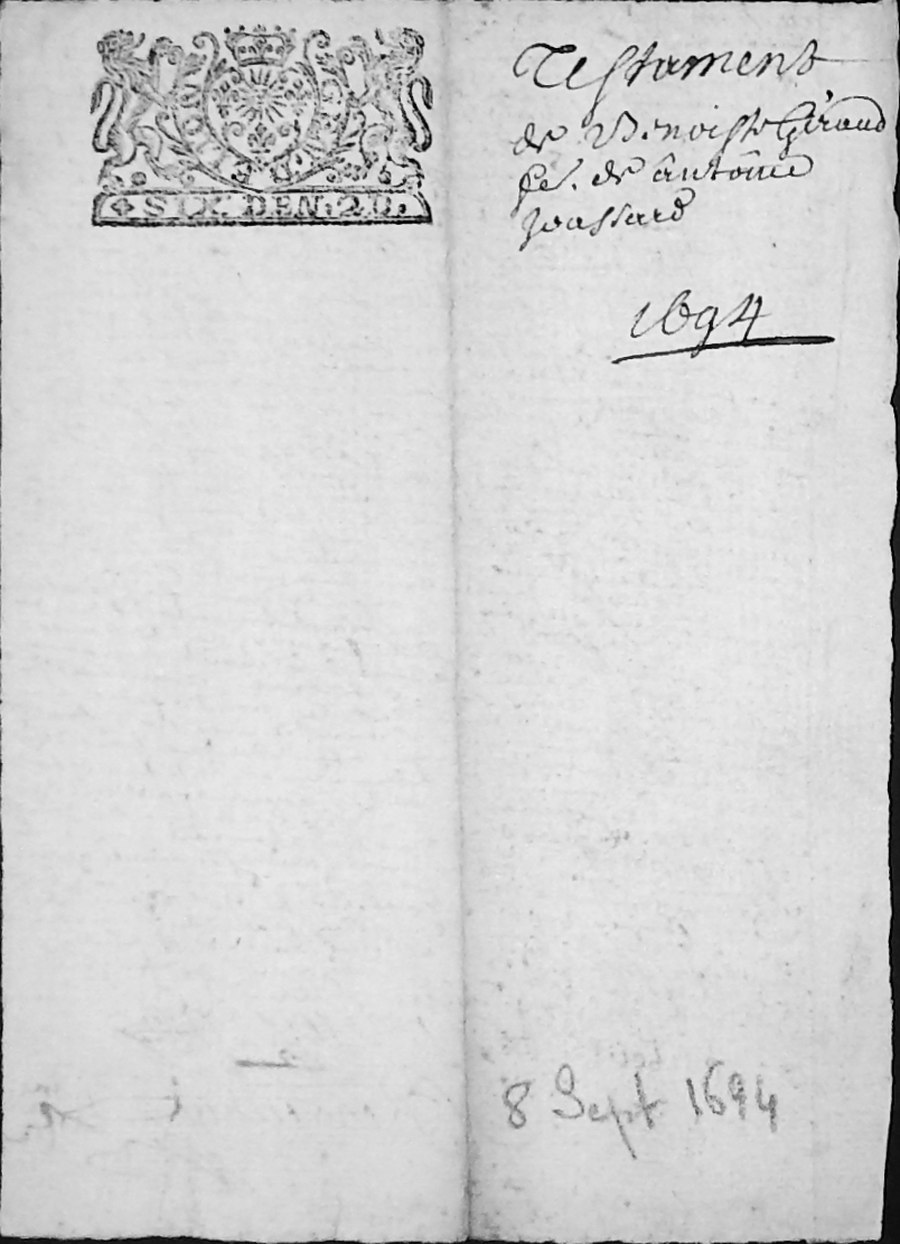 SIX DEN. 20.
Testament
de Benoiste Giraud
fe. de antoine
Joassard
1694
8 Sept 1694